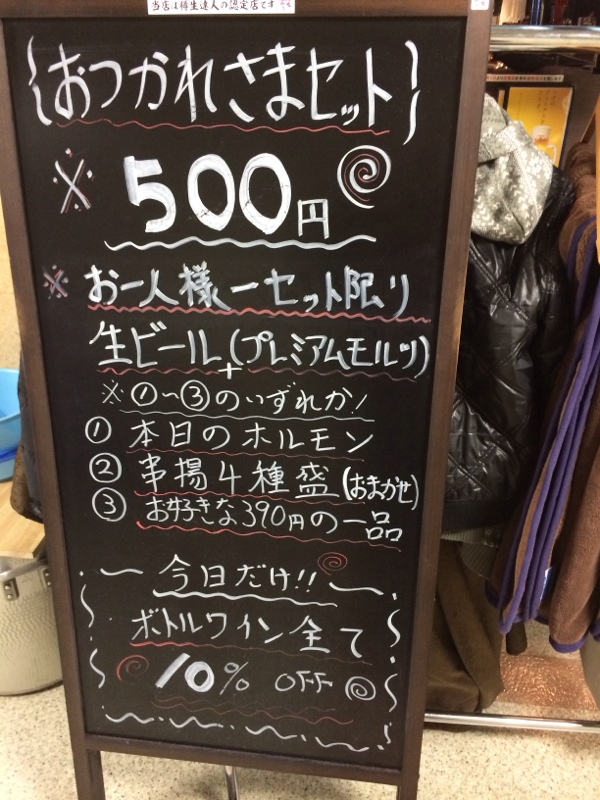 当店は樽生達人の認定店です
おつかれさまセット
※500円
※お一人様一セット限り
生ビール(プレミアムモルツ)
+
※①~③のいずれか!
① 本日のホルモン
② 串揚4種盛(おまかせ)
③ お好きな390円の一品
今日だけ!!
ボトルワイン全て
10% OFF